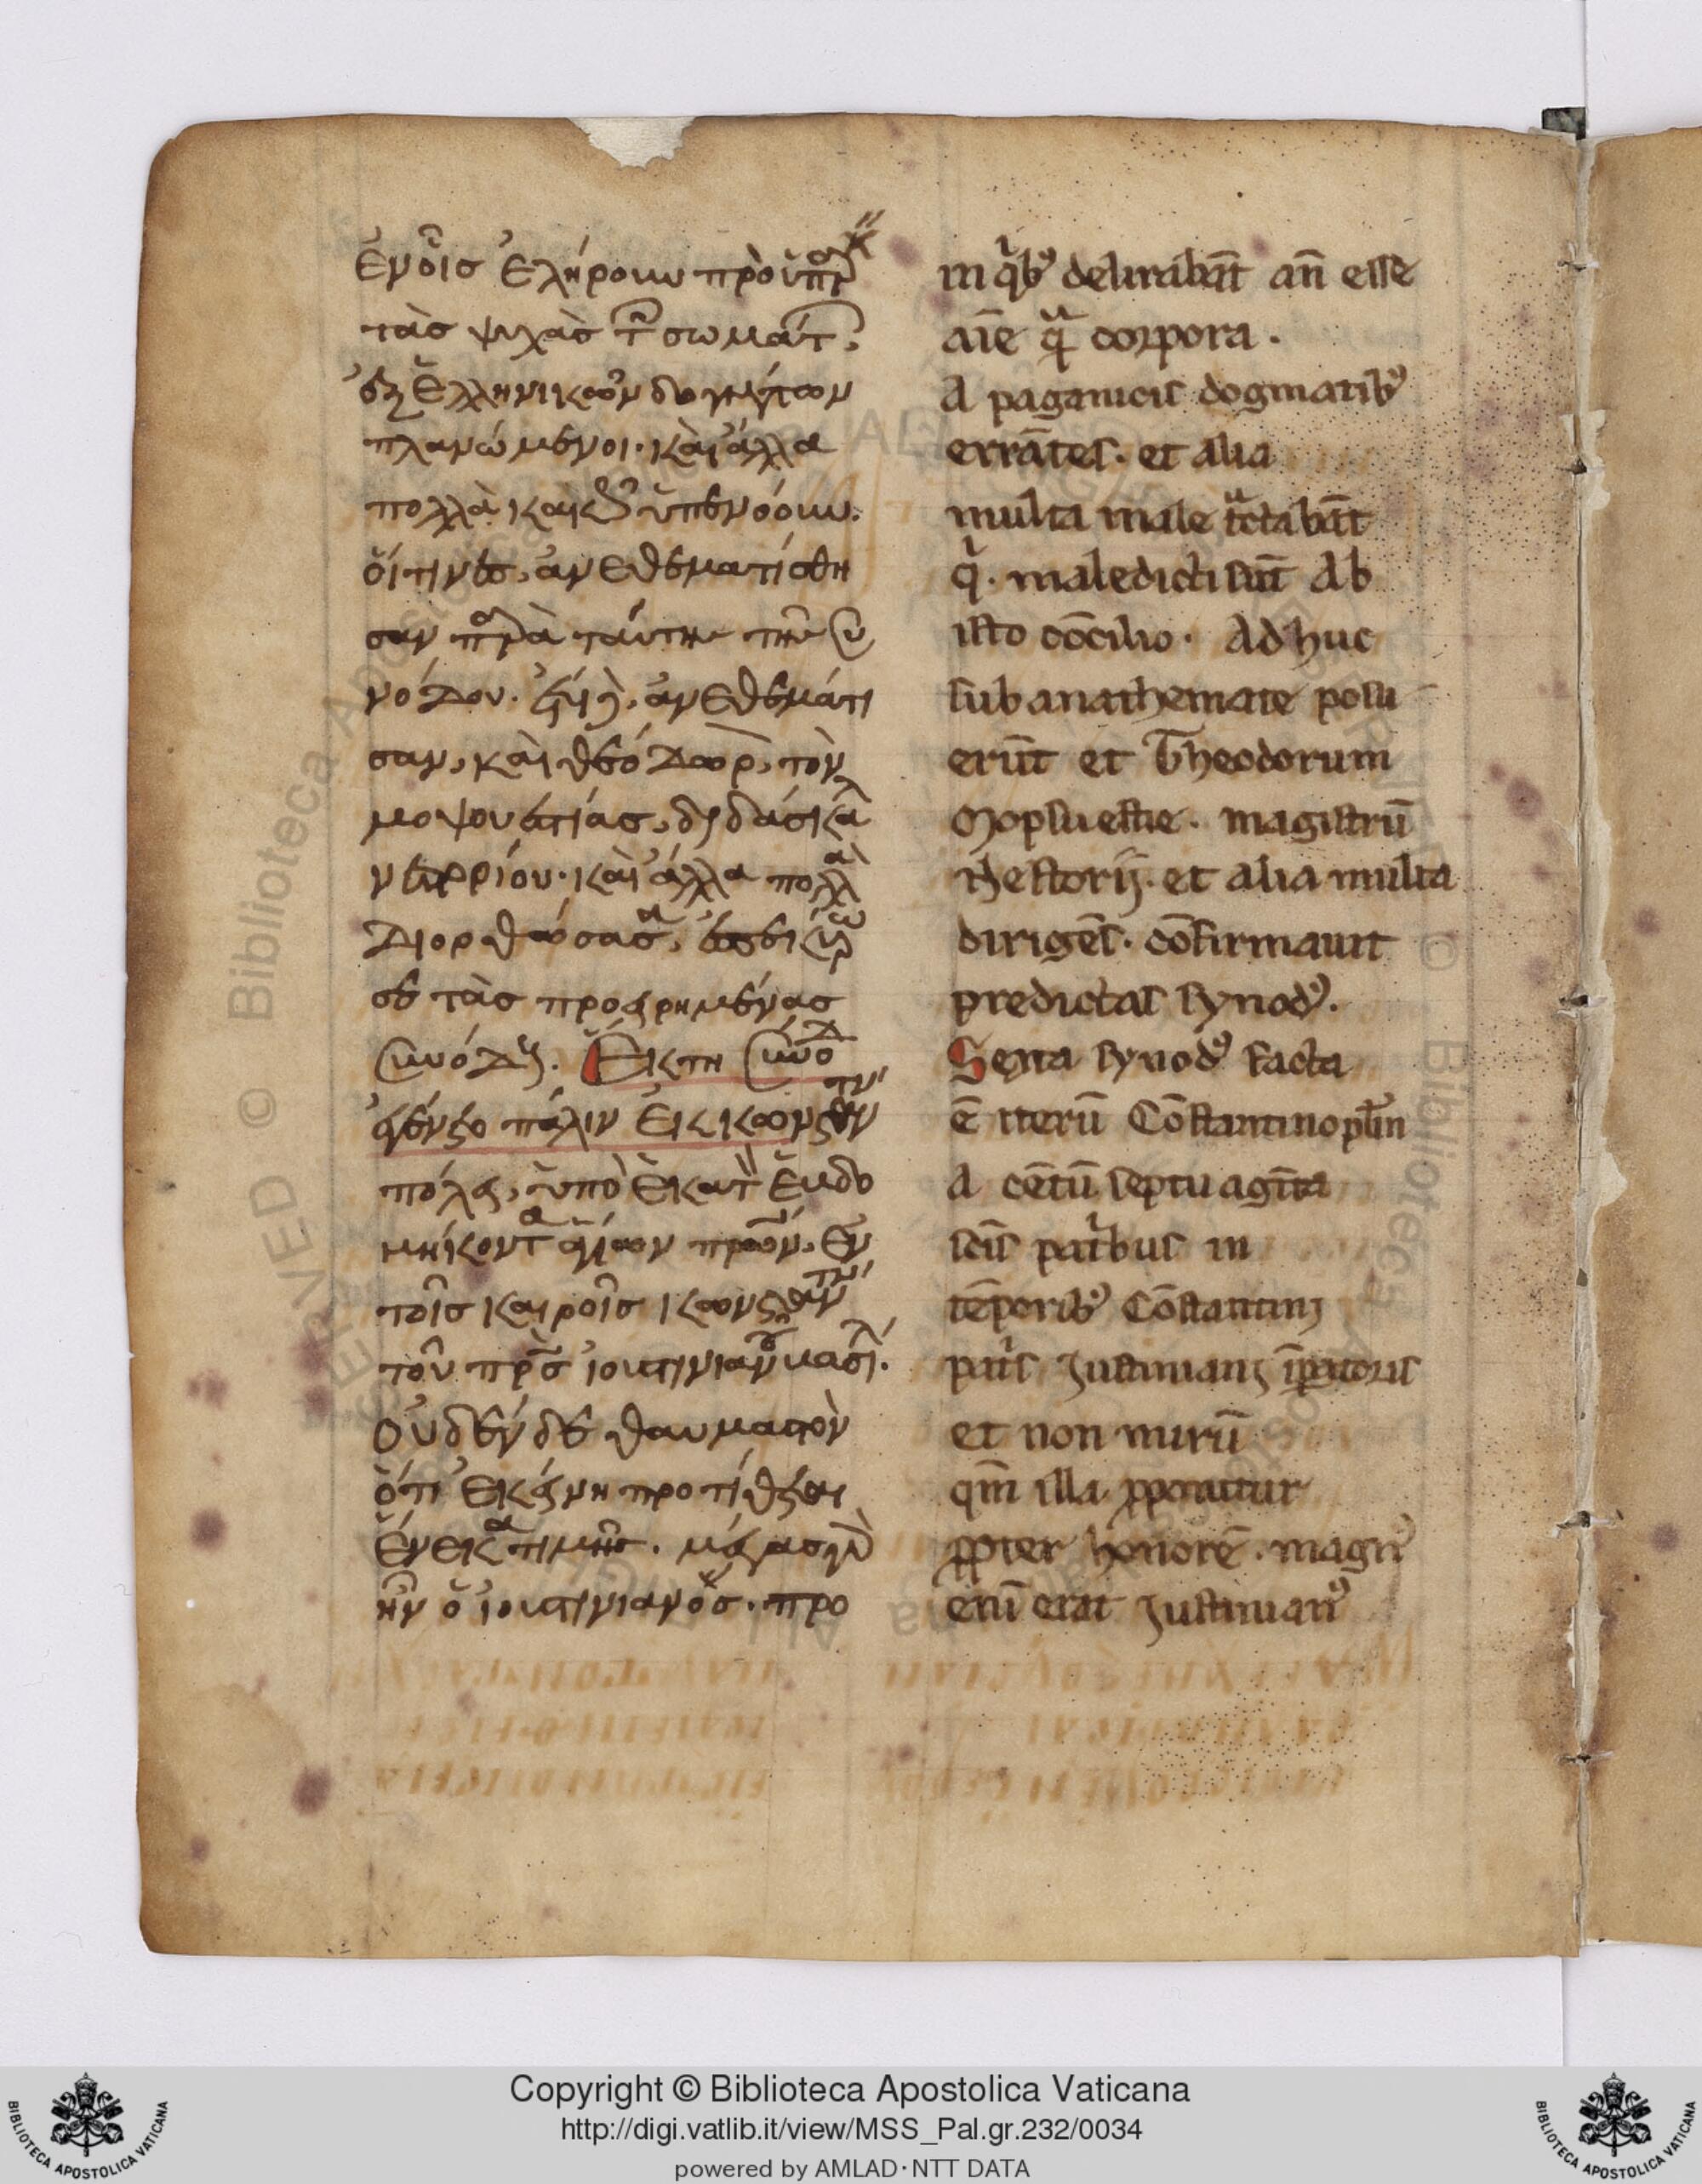 ἐν οἷς ἐλήρουν προϋπάρχ
τὰς ψυχὰς τῶν σωμάτ,
ἐξ ἑλληνικῶν δογμάτων
πλανώμενοι· καὶ ἄλλα
πολλὰ κακῶς ὑπενόουν.
οἵτινες, ἀνεθεματίσθη
σαν παρὰ ταύτην τὴν συ
νόδον. ἀνεθεμάτι
σαν, καὶ θεόδωρ, τὸν
μοψουεστίας, διδάσκαλ
νεστορίου· καὶ ἄλλα πολλὰ
διορθώσασα, ἐβεβαίω
σε τὰς προειρημένας
συνόδους. Ἕκτη σύνοδ
ἐγένετο πάλιν ἐν κωνσταντιν
πόλει, ὑπὸ ἑκατ ἑβδο
μήκοντα ἁγίων πρῶν, ἐν
τοῖς καιροῖς κωνσταντίν
τοῦ πρς ἰουστινιανοῦ βασιλ.
οὐδὲν δὲ θαυμαστὸν
ὅτι ἐκείνη προτίθεται
ἕνεκα τιμῆς. μέγας γὰρ
ἦν ὁ ἰουστινιανός. προ
in qibꝰ delirabāt an̄ esse
aīe qͣ corpora.
A paganicis dogmatibꝰ
errātes. et alia
multa male tͣctabāt
qi. maledicti sūt Ab
isto cōcilio. Adhuc
sub anathemate posu
erūt et Theodorum
Mopsuestie. magistrū
Nestorij. et alia multa
dirigēs. cōfirmauit
predictas synodꝰ.
Sexta synodꝰ facta
ē iterū Cōstantinoplim
A cētū septuagīta
scīs patribus in
tēporibꝰ Cōstantinj
patris Justinianj īperatoris
et non mirū
qm̄ illa p̱ponitur
p̱pter honorē. magnꝰ
enī erat Justinianꝰ
Copyright © Biblioteca Apostolica Vaticana
http://digi.vatlib.it/view/MSS_Pal.gr.232/0034
powered by AMLAD·NTT DATA
BIBLIOTECA APOSTOLICA VATICANA
BIBLIOTECA APOSTOLICA VATICANA